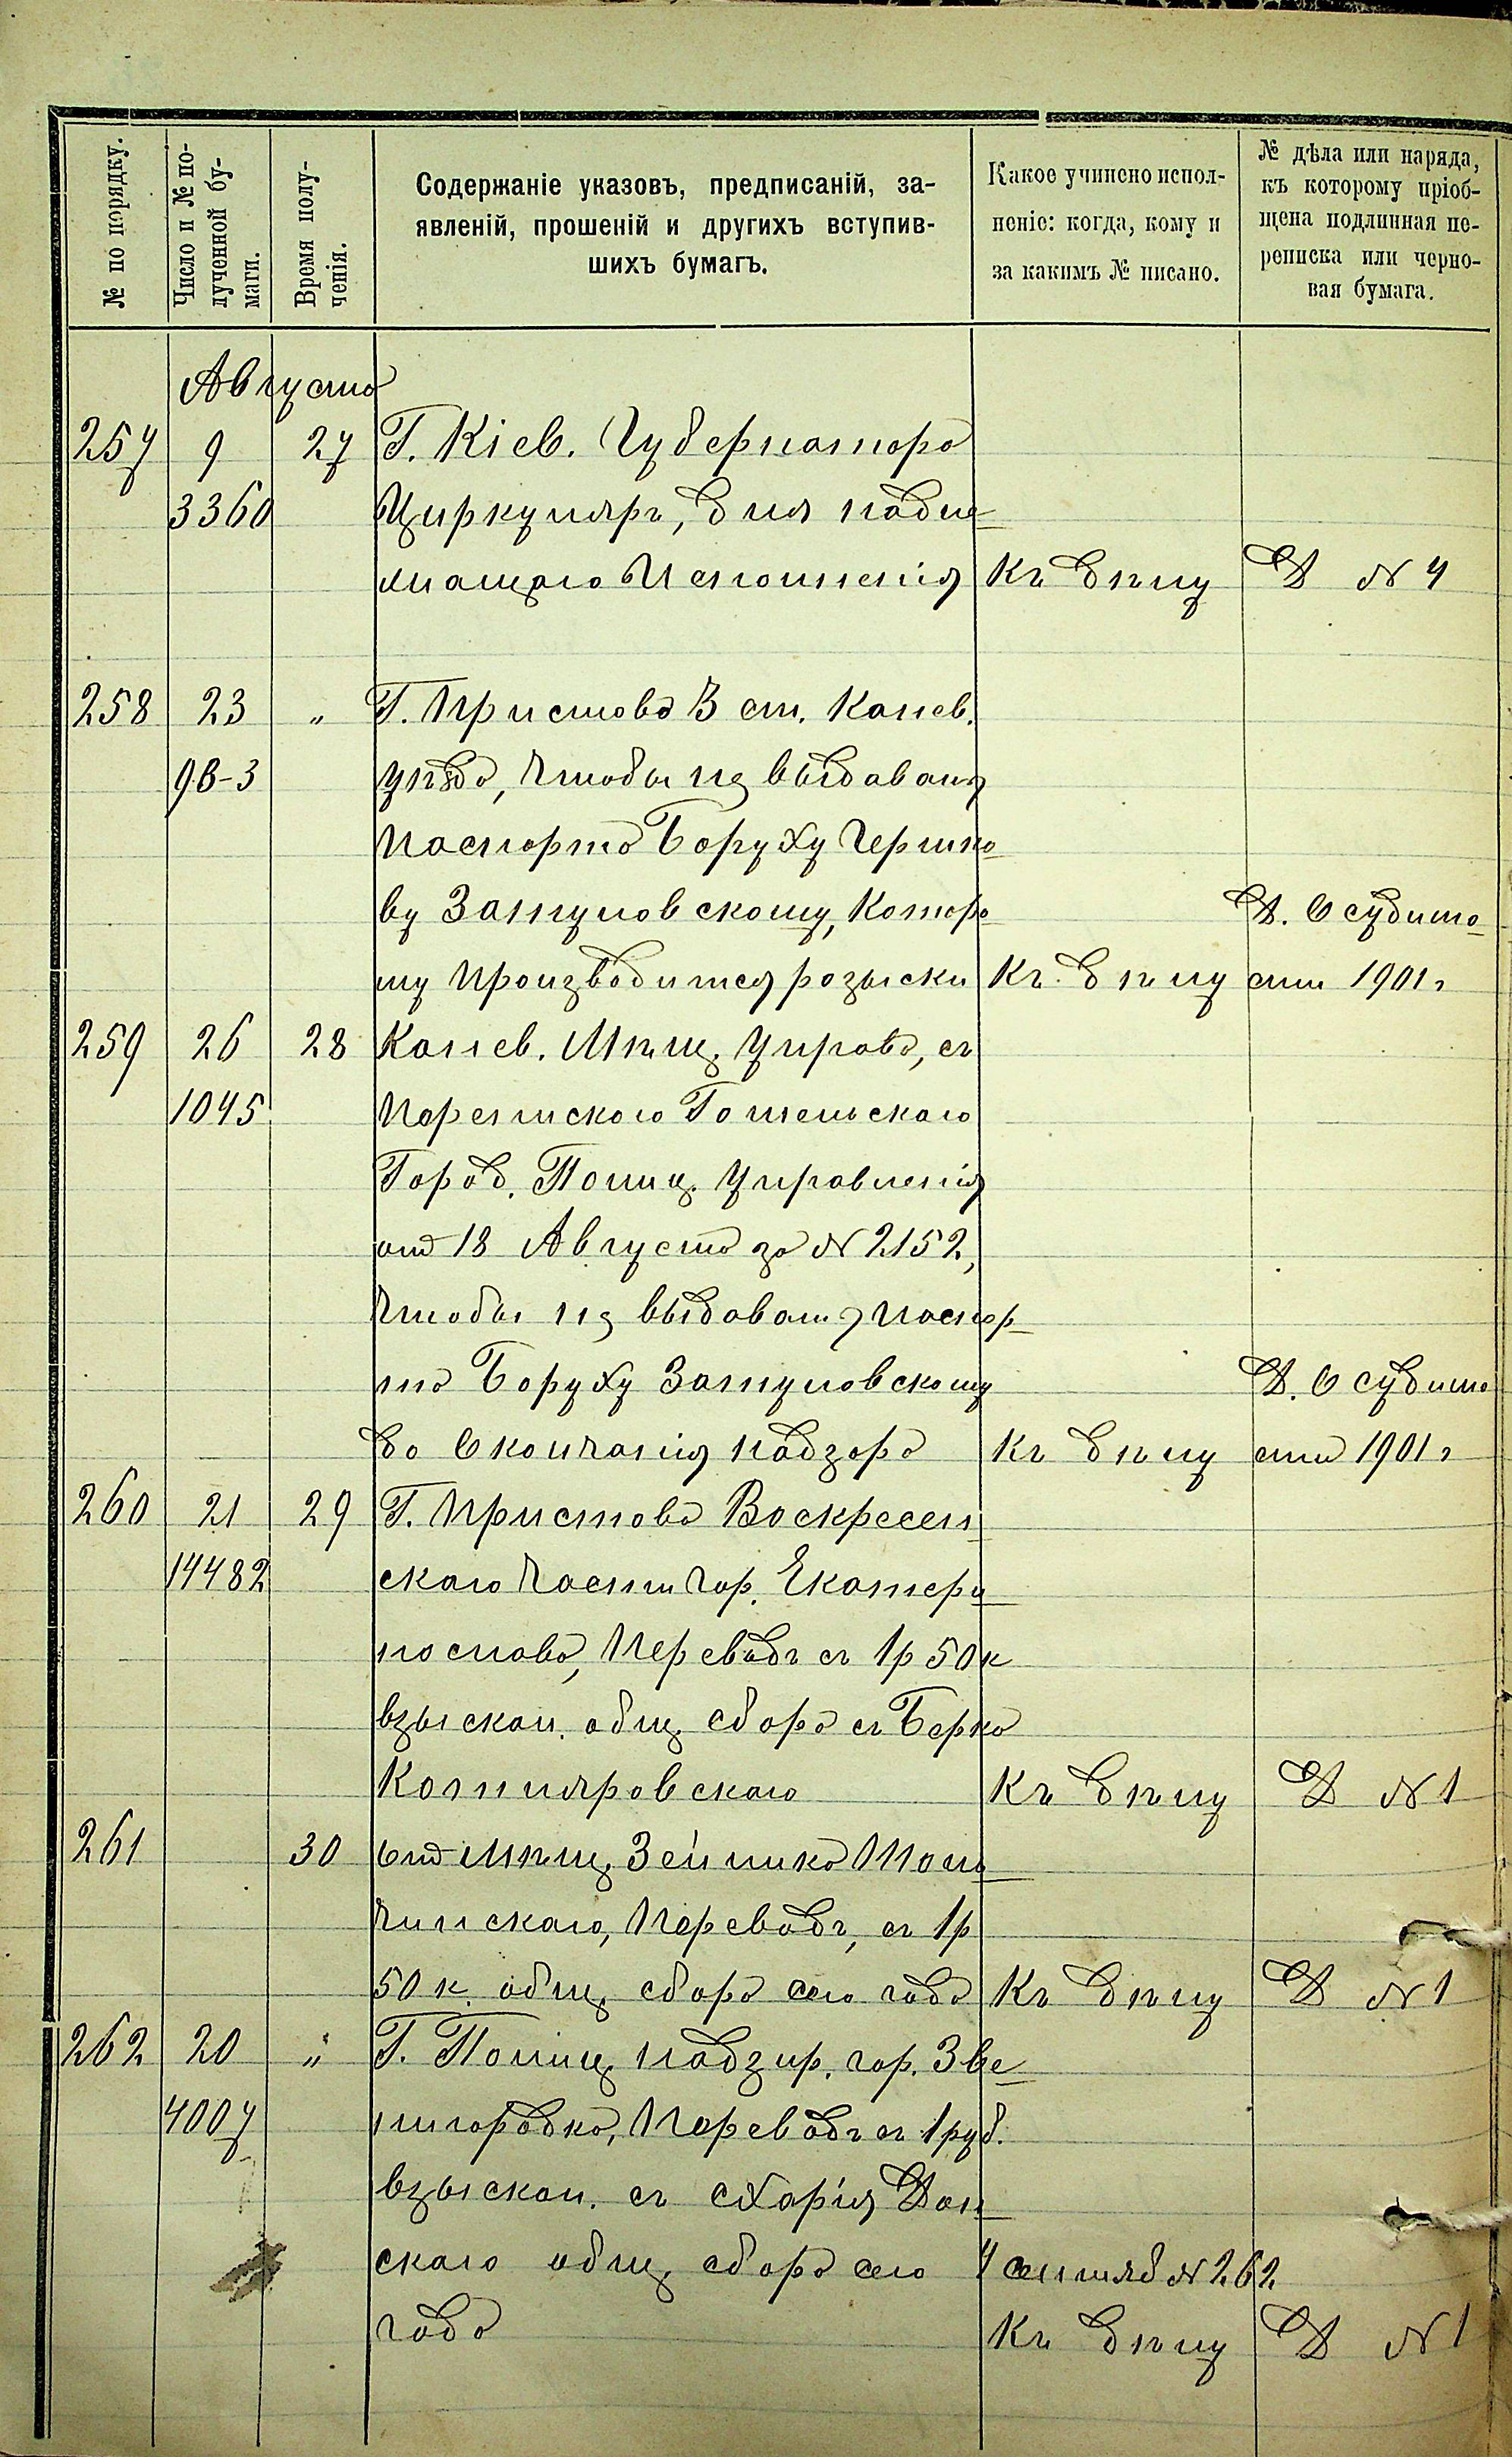 № по порядку.
Число и № по-
лученной бу-
маги.
Время полу-
ченія.
Содержаніе указовъ, предписаній, за-
явленій, прошеній и другихъ вступив-
шихъ бумагъ.
Какое учинено испол-
неніе: когда, кому и
за какимъ № писано.
№ дѣла или наряда,
къ которому пріоб-
щена подлинная пе-
реписка или черно-
вая бумага.
Августа
257 9 27 Г. Кіев. Губернатора
3360 Циркуляръ, для надле
жащаго Исполненія Къ дѣлу Д № 4
258 23 „ Г. Пристава 3 ст. Канев.
98-3 уѣзда, чтобы не выдавать
паспорта Боруху Гершко
ву Затуловскому, Которо Д. О судимо
му производится розыски Къ дѣлу сти 1901 г
259 26 28 Канев. Мѣщ. Управа, съ
1045 Перепиской Гомельскаго
Город. Полиц. Управленія
от 18 Августа за № 2152,
чтобы не выдавать паспор
та Боруху Затуловскому Д. О судимо
до Окончанія надзора Къ дѣлу сти 1901 г
260 21 29 Г. Пристава Воскресен
14482 скаго части гор. Екатери
нослава, переводъ съ 1р 50 к
взыскан. общ. сбора съ Берка
Котляровскаго Къ дѣлу Д № 1
261 30 от Мѣщ. Зейлика
чинскаго, переводъ, съ 1р
50 к. общ. сбора сего года Къ дѣлу Д № 1
262 20 „ Г. Полиц. надзир. гор. Зве
4007 нигородка, Переводъ съ 1 руб.
взыскан. съ Схарія Дон
скаго общ. сбора сего 4 сентяб № 262
года Къ дѣлу Д № 1